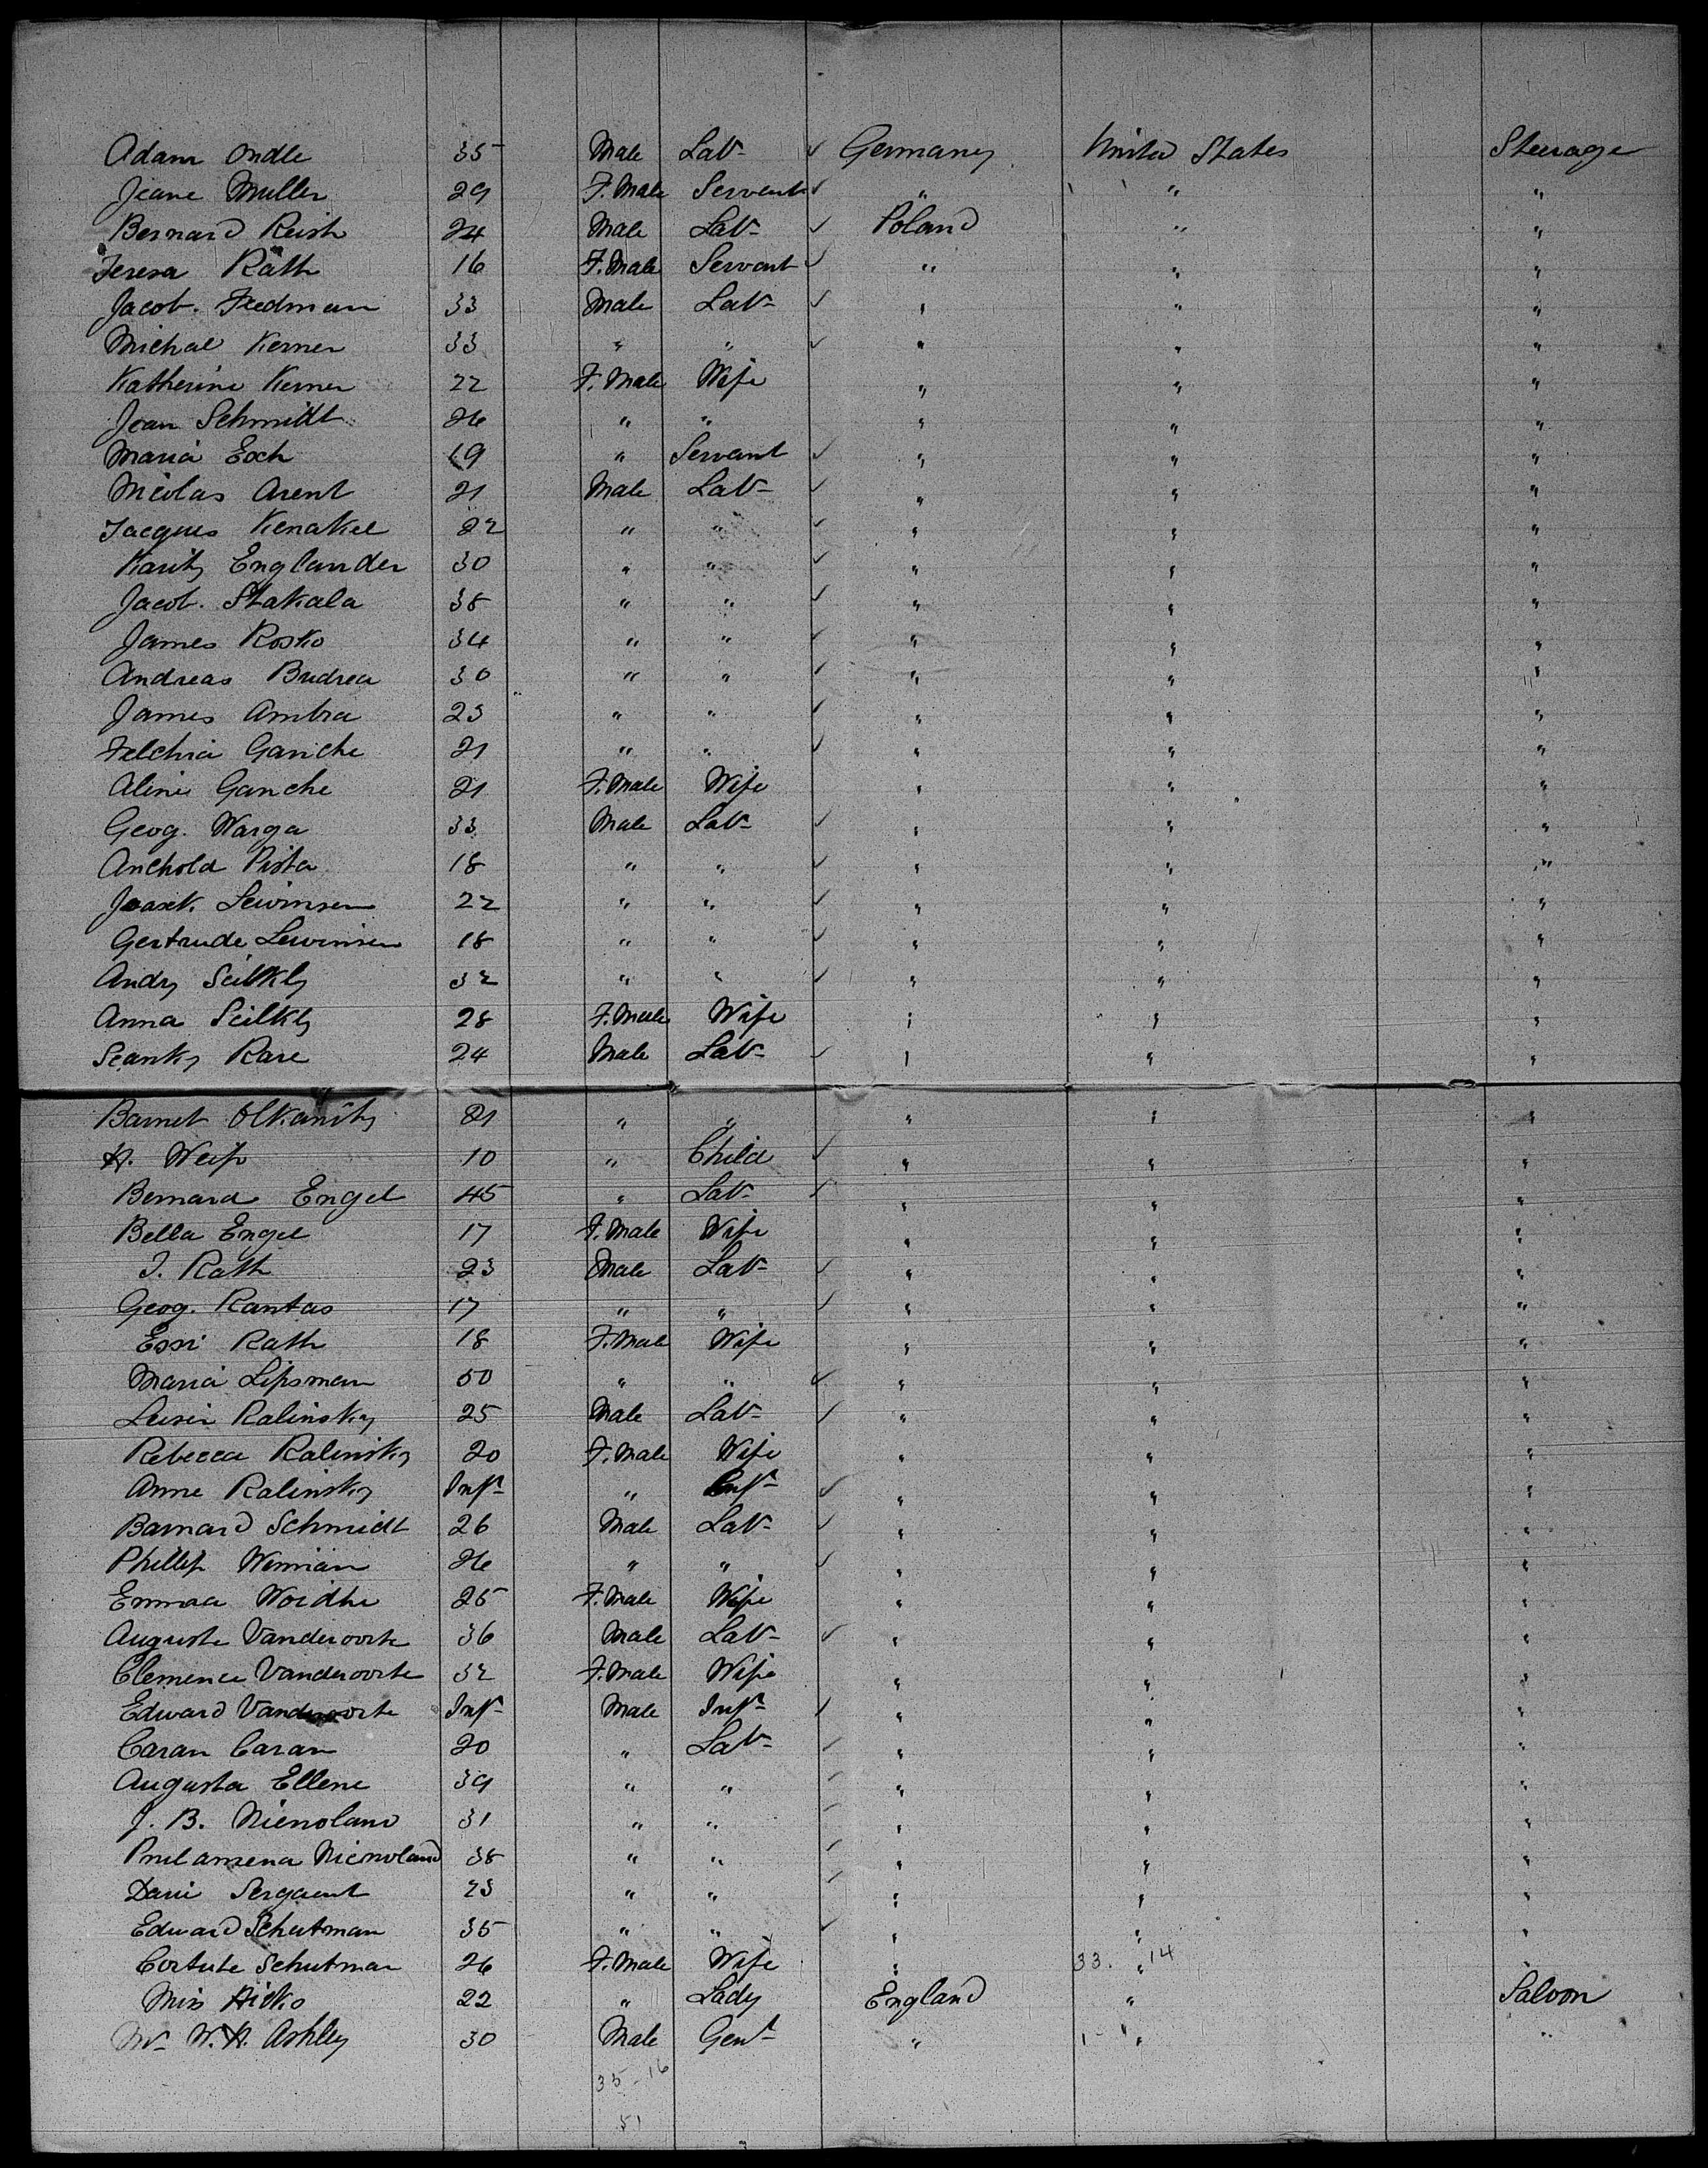 Adam Ondle 35 Male Labr ✓ Germany United States Steerage
Jeane Muller 29 F. Male Servant ✓ " " "
Bernard Reish 24 Male Labr ✓ Poland " "
Teresa Rath 16 F. Male Servant ✓ " " "
Jacob. Fredman 33 Male Labr ✓ " " "
Michal Kerner 33 " " ✓ " " "
Katherine Kerner 22 F. Male Wife " " "
Jean Schmidt 26 " " " " "
Maria Esch 19 " Servant ✓ " " "
Nicolas Arent 21 Male Labr ✓ " " "
Jacques Kenakel 22 " " ✓ " " "
Englander 30 " " ✓ " " "
Jacob. Stakala 38 " " ✓ " " "
James Rosko 34 " " ✓ " " "
Andreas Budrea 30 " " ✓ " " "
James Ambra 23 " " ✓ " " "
Ganche 21 " " ✓ " " "
Aline Ganche 21 F. Male Wife " " "
Geog. Warga 33 Male Labr ✓ " " "
Anchold Pista 18 " " ✓ " " "
Lewinsen 22 " " ✓ " " "
Gertrude Lewinsen 18 " " ✓ " " "
Andry Seilkly 32 " " ✓ " " "
Anna Seilkly 28 F. Male Wife " " "
Rare 24 Male Labr ✓ " " "
Barnet Olkanity 21 " " " " "
H. Weiss 10 " Child ✓ " " "
Bernard Engel 45 " Labr ✓ " " "
Bella Engel 17 F. Male Wife " " "
J. Rath 23 Male Labr ✓ " " "
Geog. Rantas 17 " " ✓ " " "
Essi Rath 18 F. Male Wife " " "
Maria Lipsman 50 " " ✓ " " "
Leisir Ralinsky 25 Male Labr ✓ " " "
Rebecca Ralinsky 20 F. Male Wife " " "
Anne Ralinsky Inft " Inft ✓ " " "
Barnard Schmidt 26 Male Labr ✓ " " "
Phillip 26 " " ✓ " " "
Emma Woidke 25 F. Male Wife " " "
Auguste Vandervorte 36 Male Labr ✓ " " "
Clemence Vandervorte 32 F. Male Wife " " "
Edward Vandervorte Inft Male Inft ✓ " " "
Caran Caran 20 " Labr ✓ " " "
Augusta Ellene 39 " " ✓ " " "
J. B. Nienoland 31 " " ✓ " " "
Nienoland 38 " " ✓ " " "
Darie Sergaent 23 " " ✓ " " "
Edward Schutman 35 " " ✓ " " "
Schutman 26 F. Male Wife " 33. 14 " "
Miss Hicks 22 " Lady England " Saloon
Mr W. H. Ashley 30 Male Gent " 1 - 1 " "
35 - 16
51